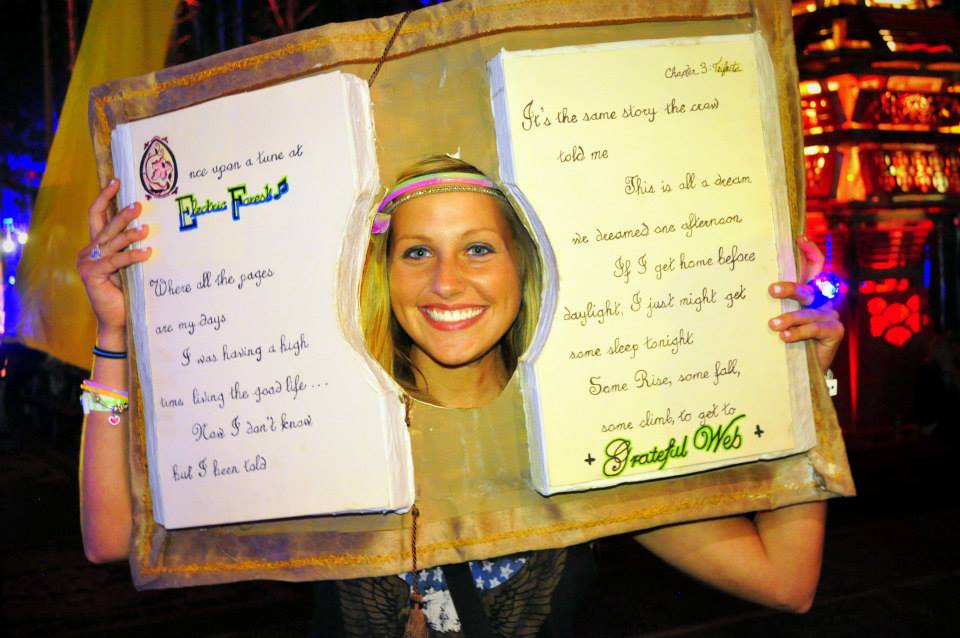 Once upon a tune at
Electric Forest
Where all the pages
are my days
I was having a high
time living the good life...
Now I don't know
but I been told
Chapter 3:
It's the same story the crow
told me
This is all a dream
we dreamed one afternoon
If I get home before
daylight, I just might get
some sleep tonight
Some Rise, some fall,
some climb, to get to
+ Grateful Web +